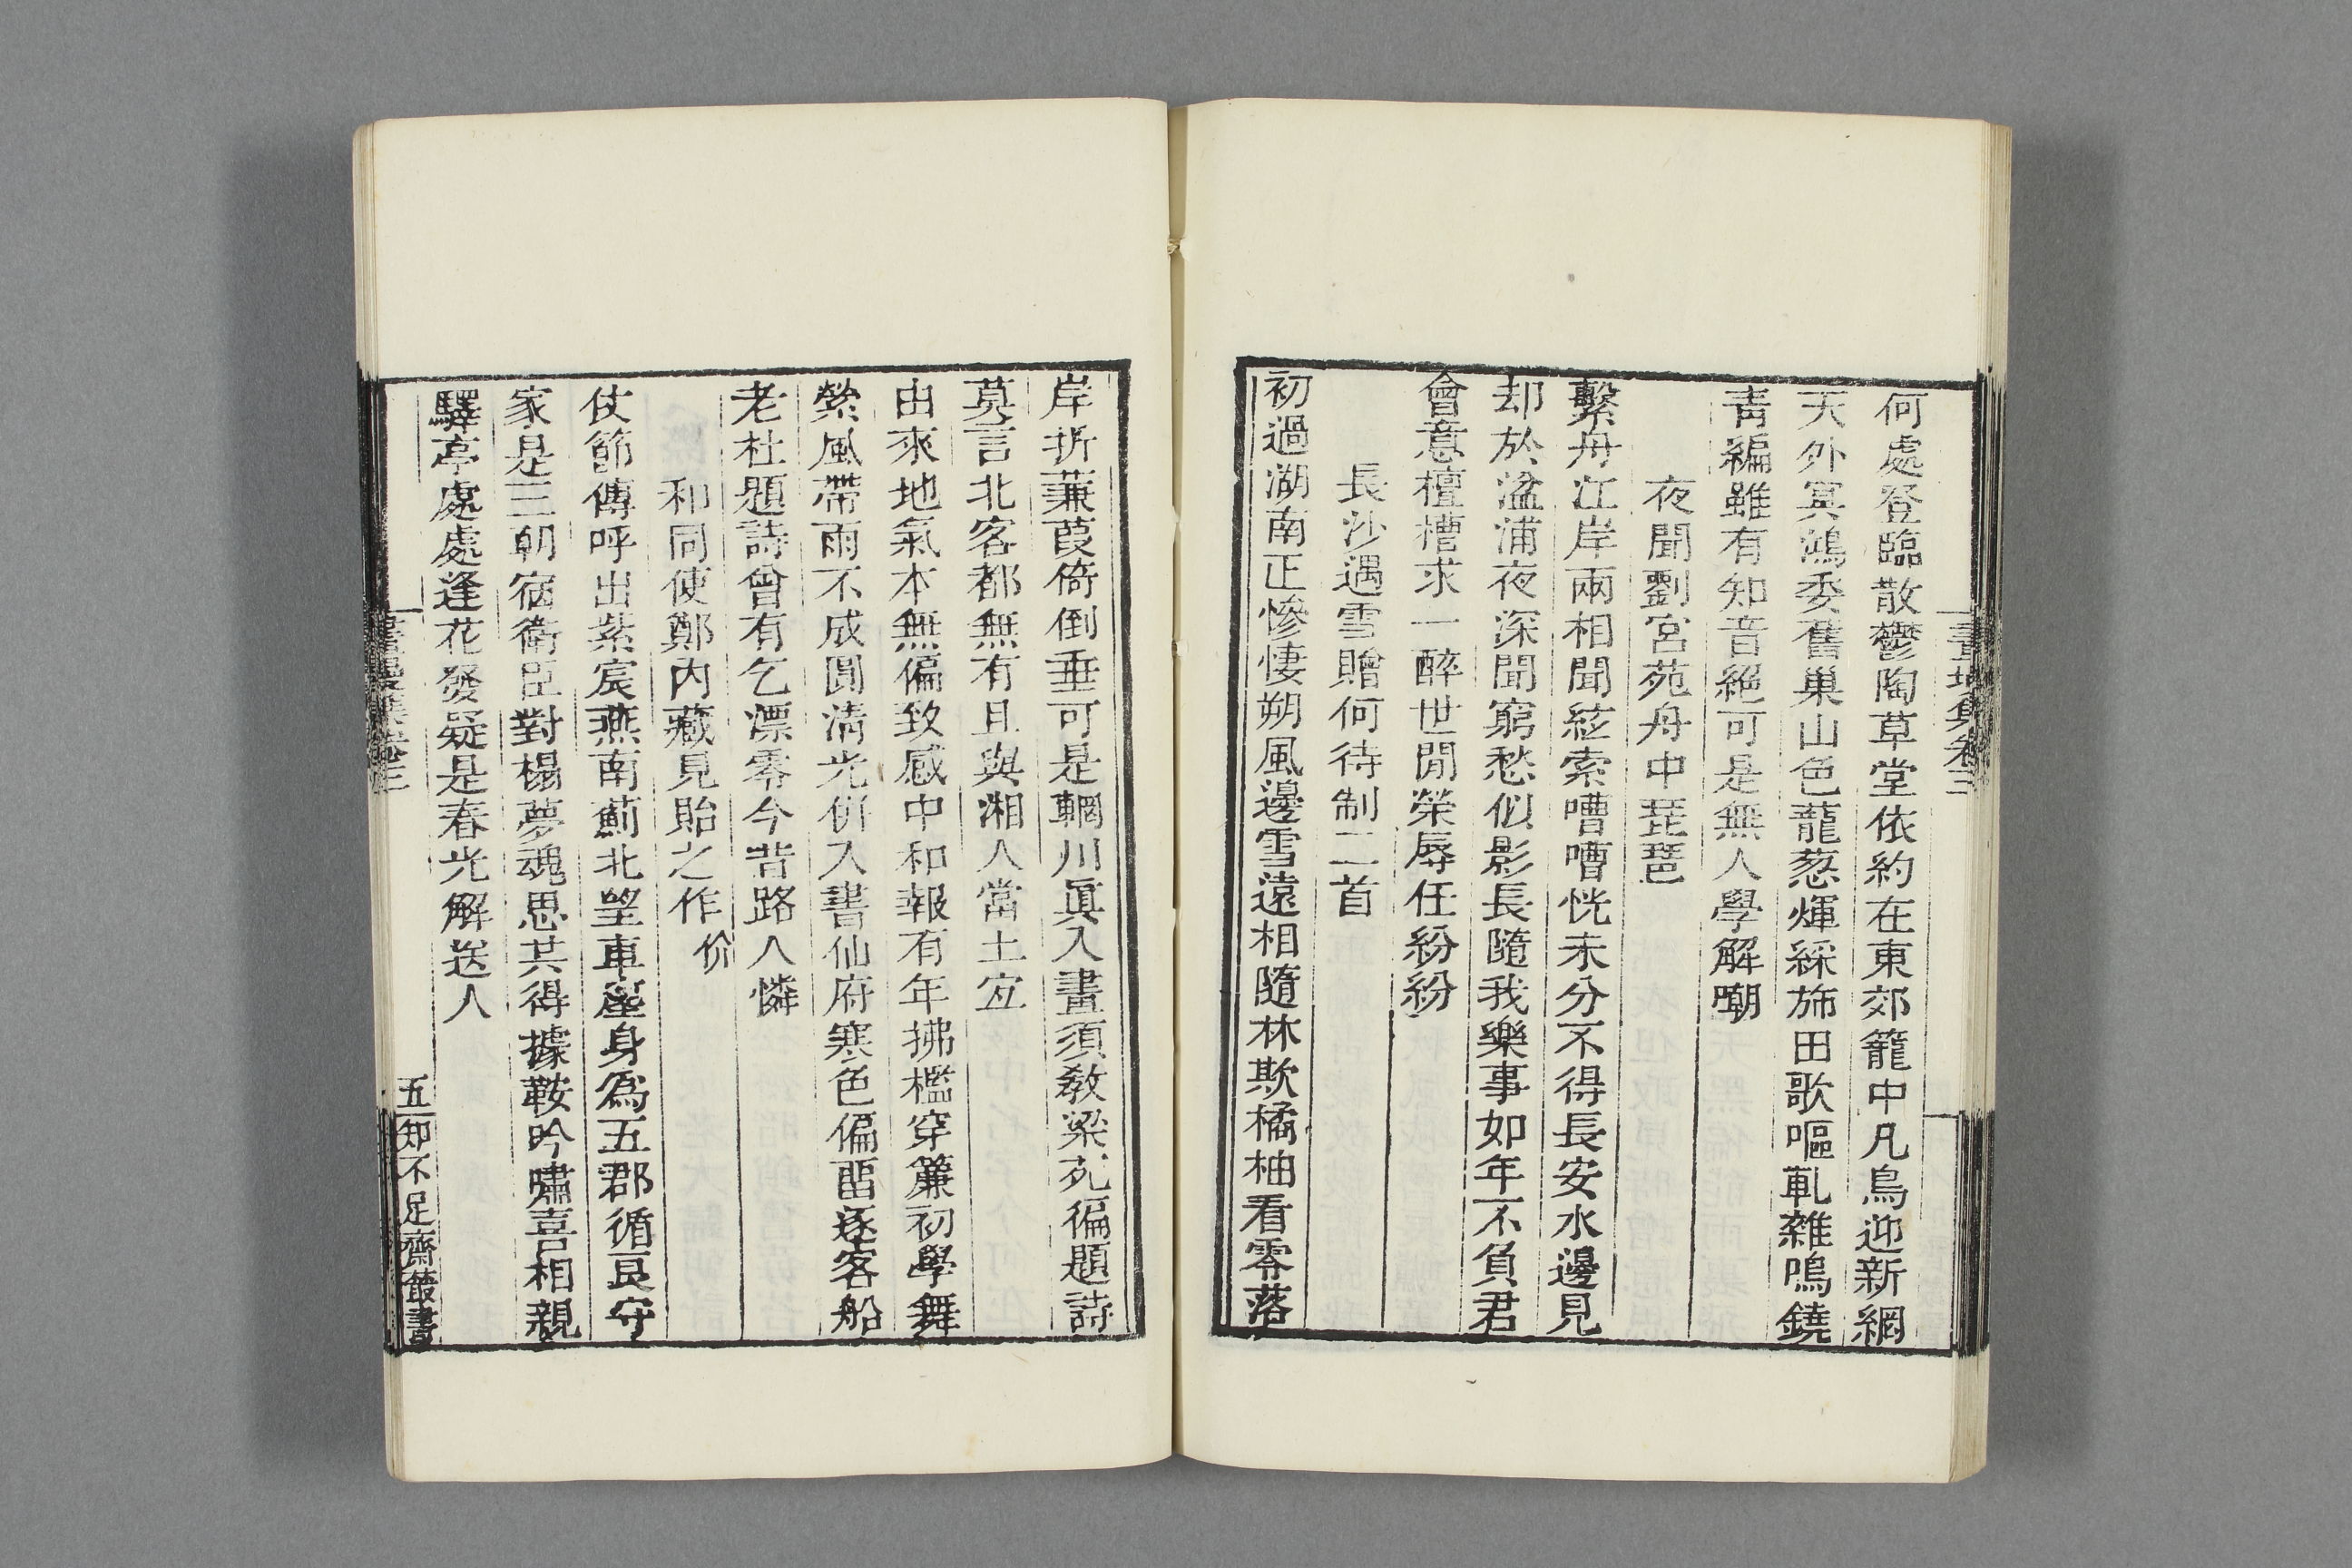 畫墁集卷三
何處登臨散鬱陶草堂依約在東郊籠中凡鳥迎新網
天外冥鴻委舊巢山色蘢葱煇綵斾田歌嘔軋雜鳴鐃
靑編雖有知音絕可是無人學解嘲
夜聞劉宮苑舟中琵琶
繫舟江岸兩相聞絃索嘈嘈恍未分不得長安水邊見
却於湓浦夜深聞窮愁似影長隨我樂事如年不負君
會意檀槽求一醉世閒榮辱任紛紛
長沙遇雪贈何待制二首
初過湖南正慘悽朔風邊雪遠相隨林欺橘柚看零落
岸折蒹葭倚倒垂可是輞川眞入畫須敎梁苑徧題詩
莫言北客都無有且與湘人當土宐
由來地氣本無偏致感中和報有年拂檻穿簾初學舞
縈風帶雨不成圓淸光併入書仙府寒色偏畱逐客船
老杜題詩曾有乞漂零今昔路人憐
和同使鄭內藏見貽之作价
仗節傳呼出紫宸燕南薊北望車塵身爲五郡循良守
家是三朝宿衞臣對榻夢魂思共得據鞍吟嘯喜相親
驛亭處處逢花發疑是春光解送人
畫墁集卷三
五
知不足齋叢書